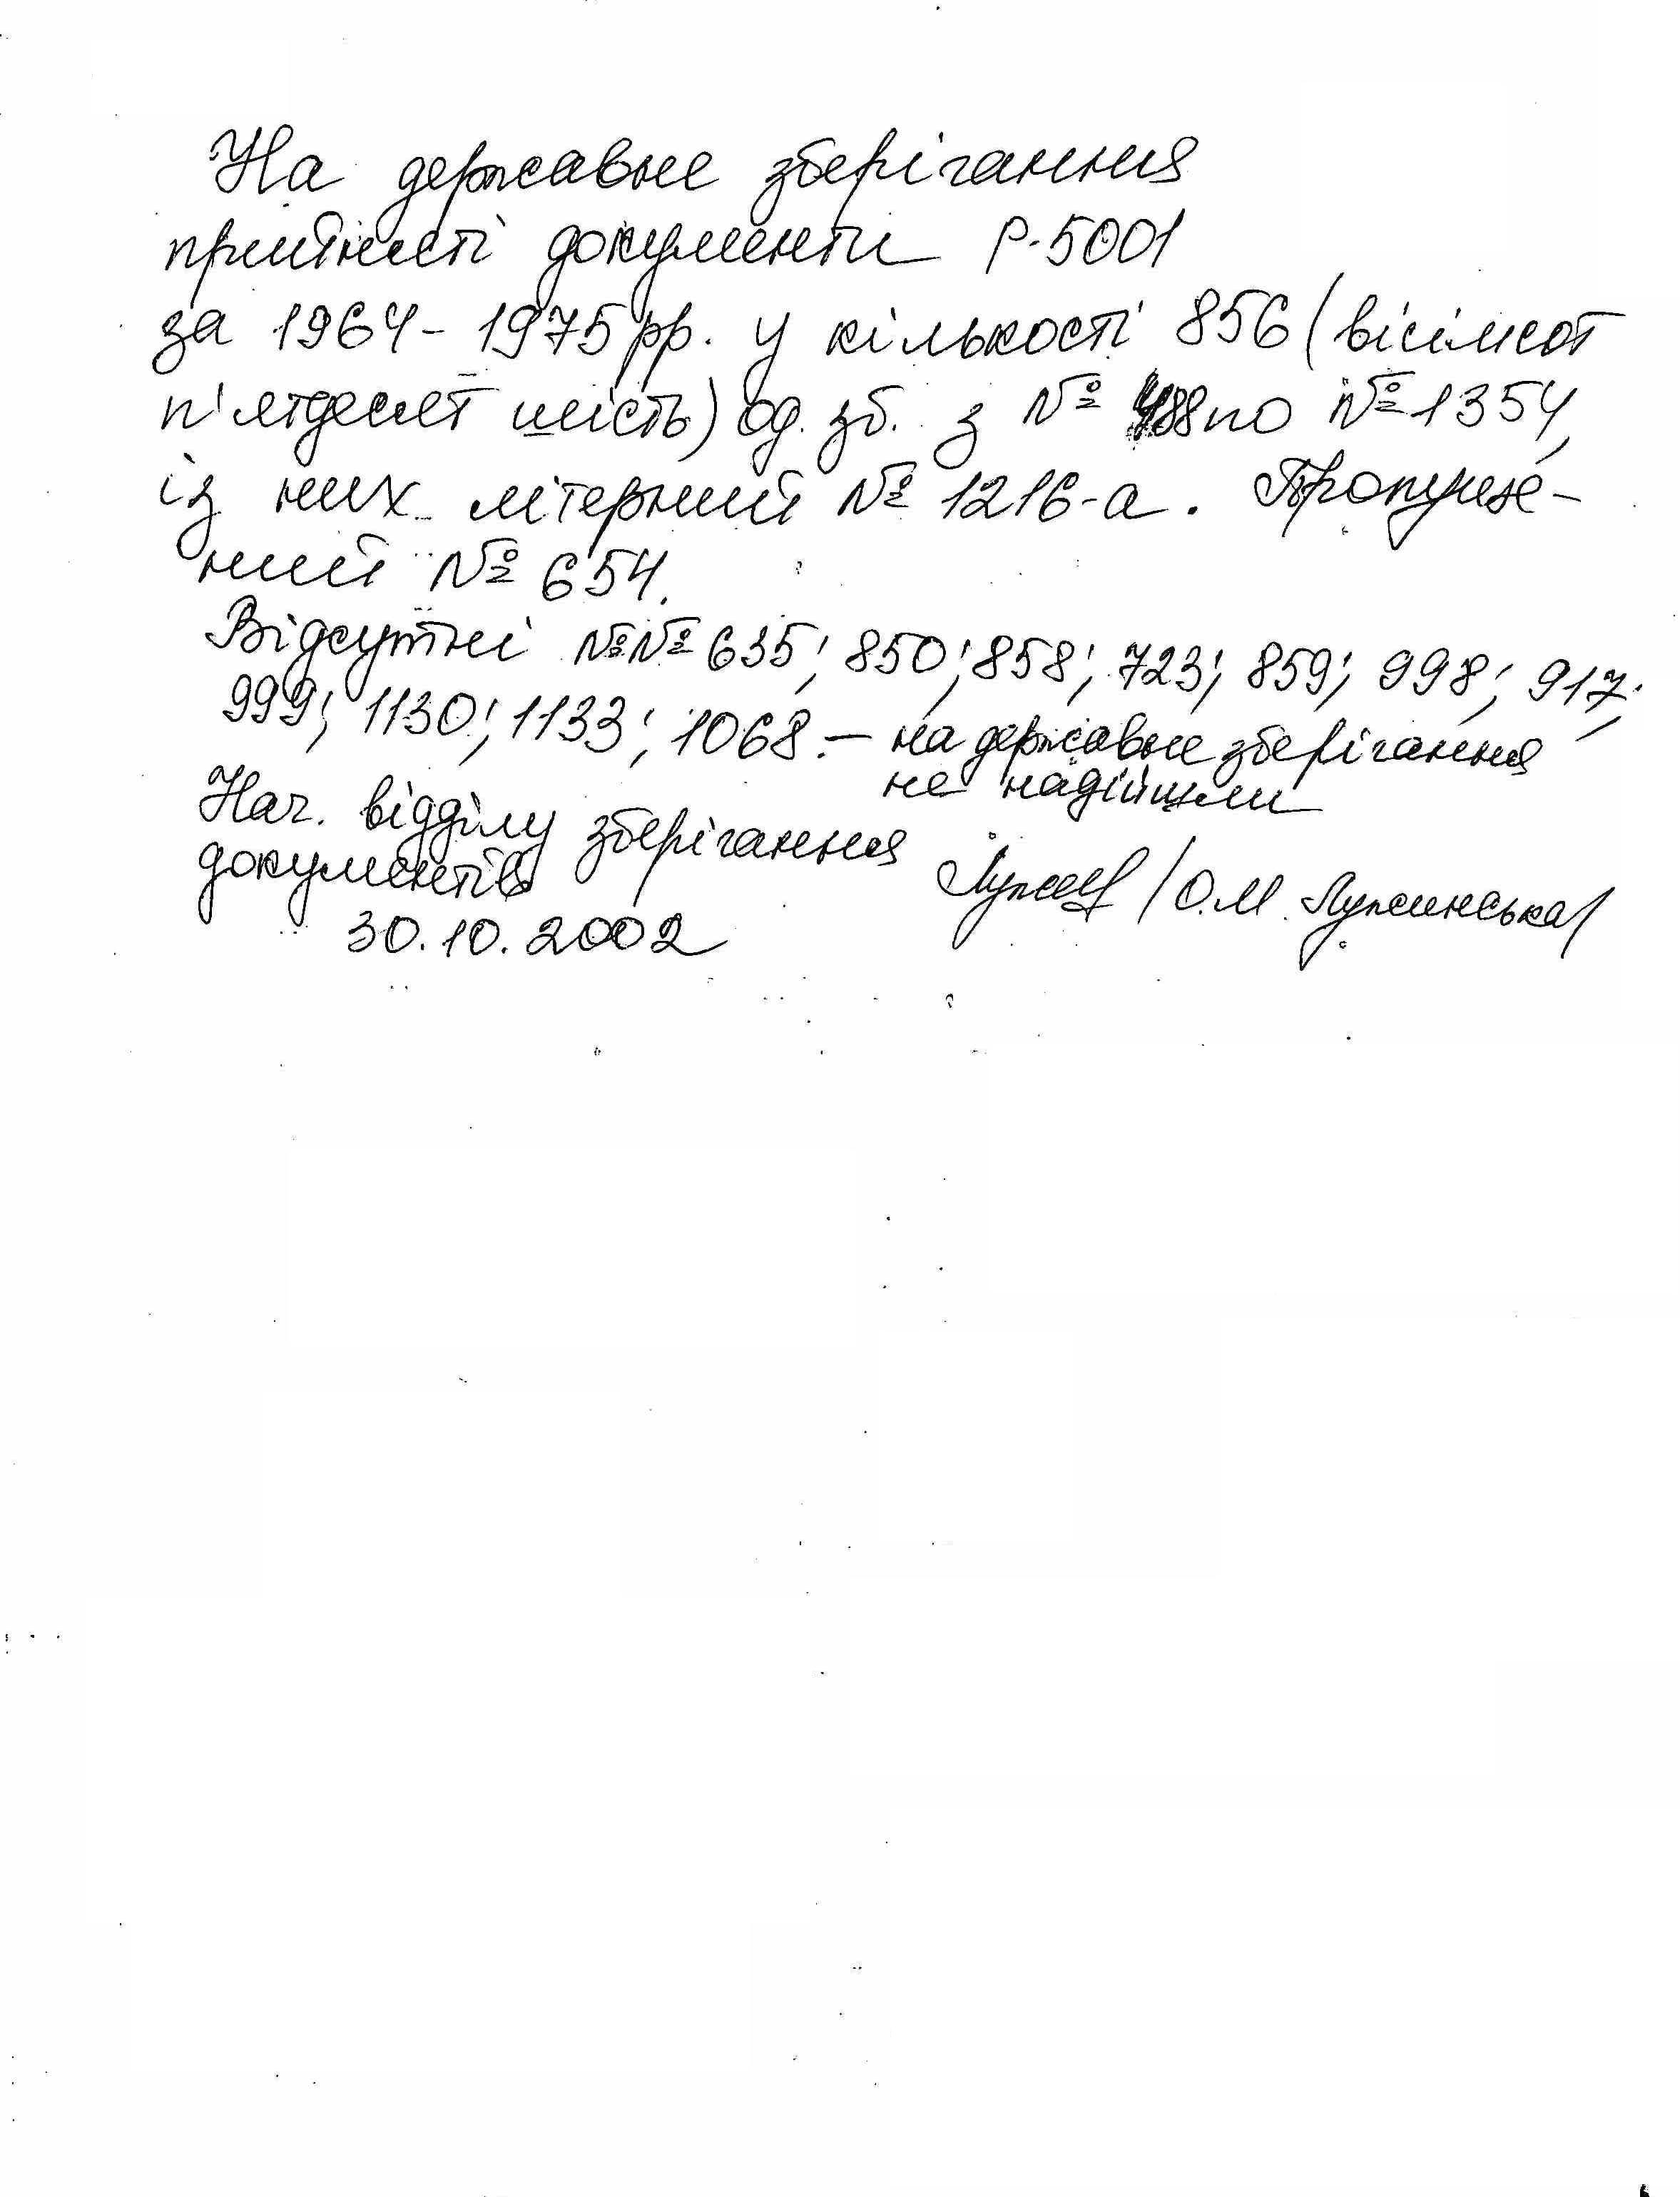 На державне зберігання
прийняті документи Р-5001
за 1964-1975 рр. у кількості 856 (вісімсот
п'ятдесят шість) од. зб. з № 488 по № 1354,
із них літерний № 1216-а. Пропуще-
ний № 654.
Відсутні №№ 635; 850; 858; 723; 859; 998; 917;
999; 1130; 1133; 1068. – на державне зберігання
не надійшли
Нач. відділу зберігання
документів /О.М. Лужинська/
30.10.2002